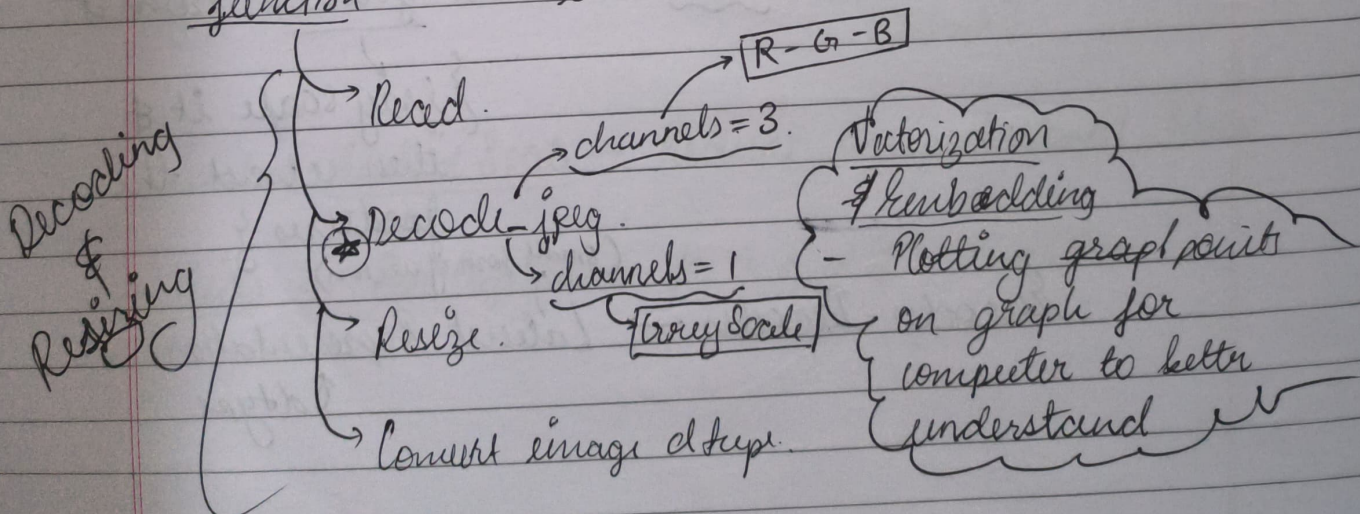 function
R - G - B
Read.
channels = 3.
Decoding
&
Resizing
Decode-jpeg.
channels = 1
Grey Scale
Resize.
Convert image dtype.
Vectorization
& Embedding
- Plotting graph points
on graph for
computer to bettr
understand